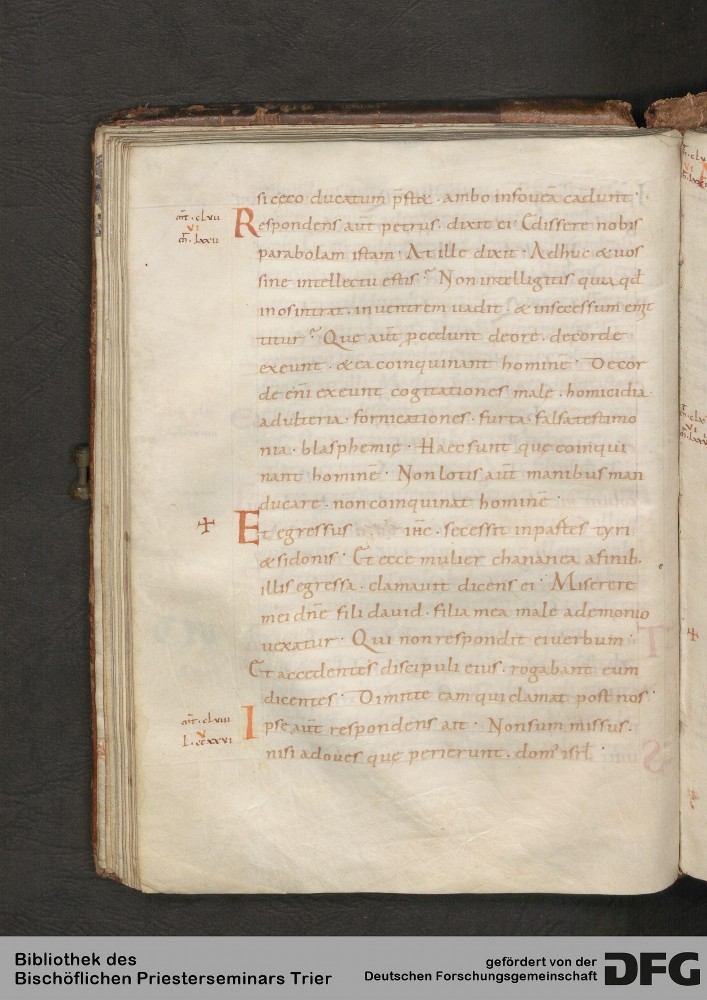 si ceco ducatum p̄stæ · ambo in fouea cadunt ·
m̄t · clvii
Respondens aut̄ petrus · dixit ei · Edissere nobis
vi
m̄r · lxxii
parabolam istam · At ille dixit · Adhuc & uos
sine intellectu estis ? Non intelligitis quia qd̄
in os intrat · in uentrem uadit · & in secessum emit
titur ? Que aut̄ pcedunt de ore · de corde
exeunt · & ea coinquinant hominē · De cor
de eni exeunt cogitationes male · homicidia ·
adulteria · fornicationes · furta · falsa testimo
nia · blasphemię · Haec sunt quę coinqui
nant hominē · Non lotis aut̄ manibus man
ducare · non coinquinat hominē ·
Et egressus ihc̄ · secessit in partes tyri
& sidonis · Et ecce mulier chananea a finib·
illis egressa · clamauit dicens ei · Miserere
mei dn̄e fili dauid · filia mea male a demonio
uexatur · Qui non respondit ei uerbum ·
Et accedentes discipuli eius · rogabant eum
dicentes · Dimitte eam qui clamat post nos ·
m̄t · clviii
Ipse aut̄ respondens ait · Non sum missus ·
v
nisi ad oues quę perierunt · dom' isrl̄ ·
Bibliothek des
Bischöflichen Priesterseminars Trier
gefördert von der
Deutschen Forschungsgemeinschaft
DFG